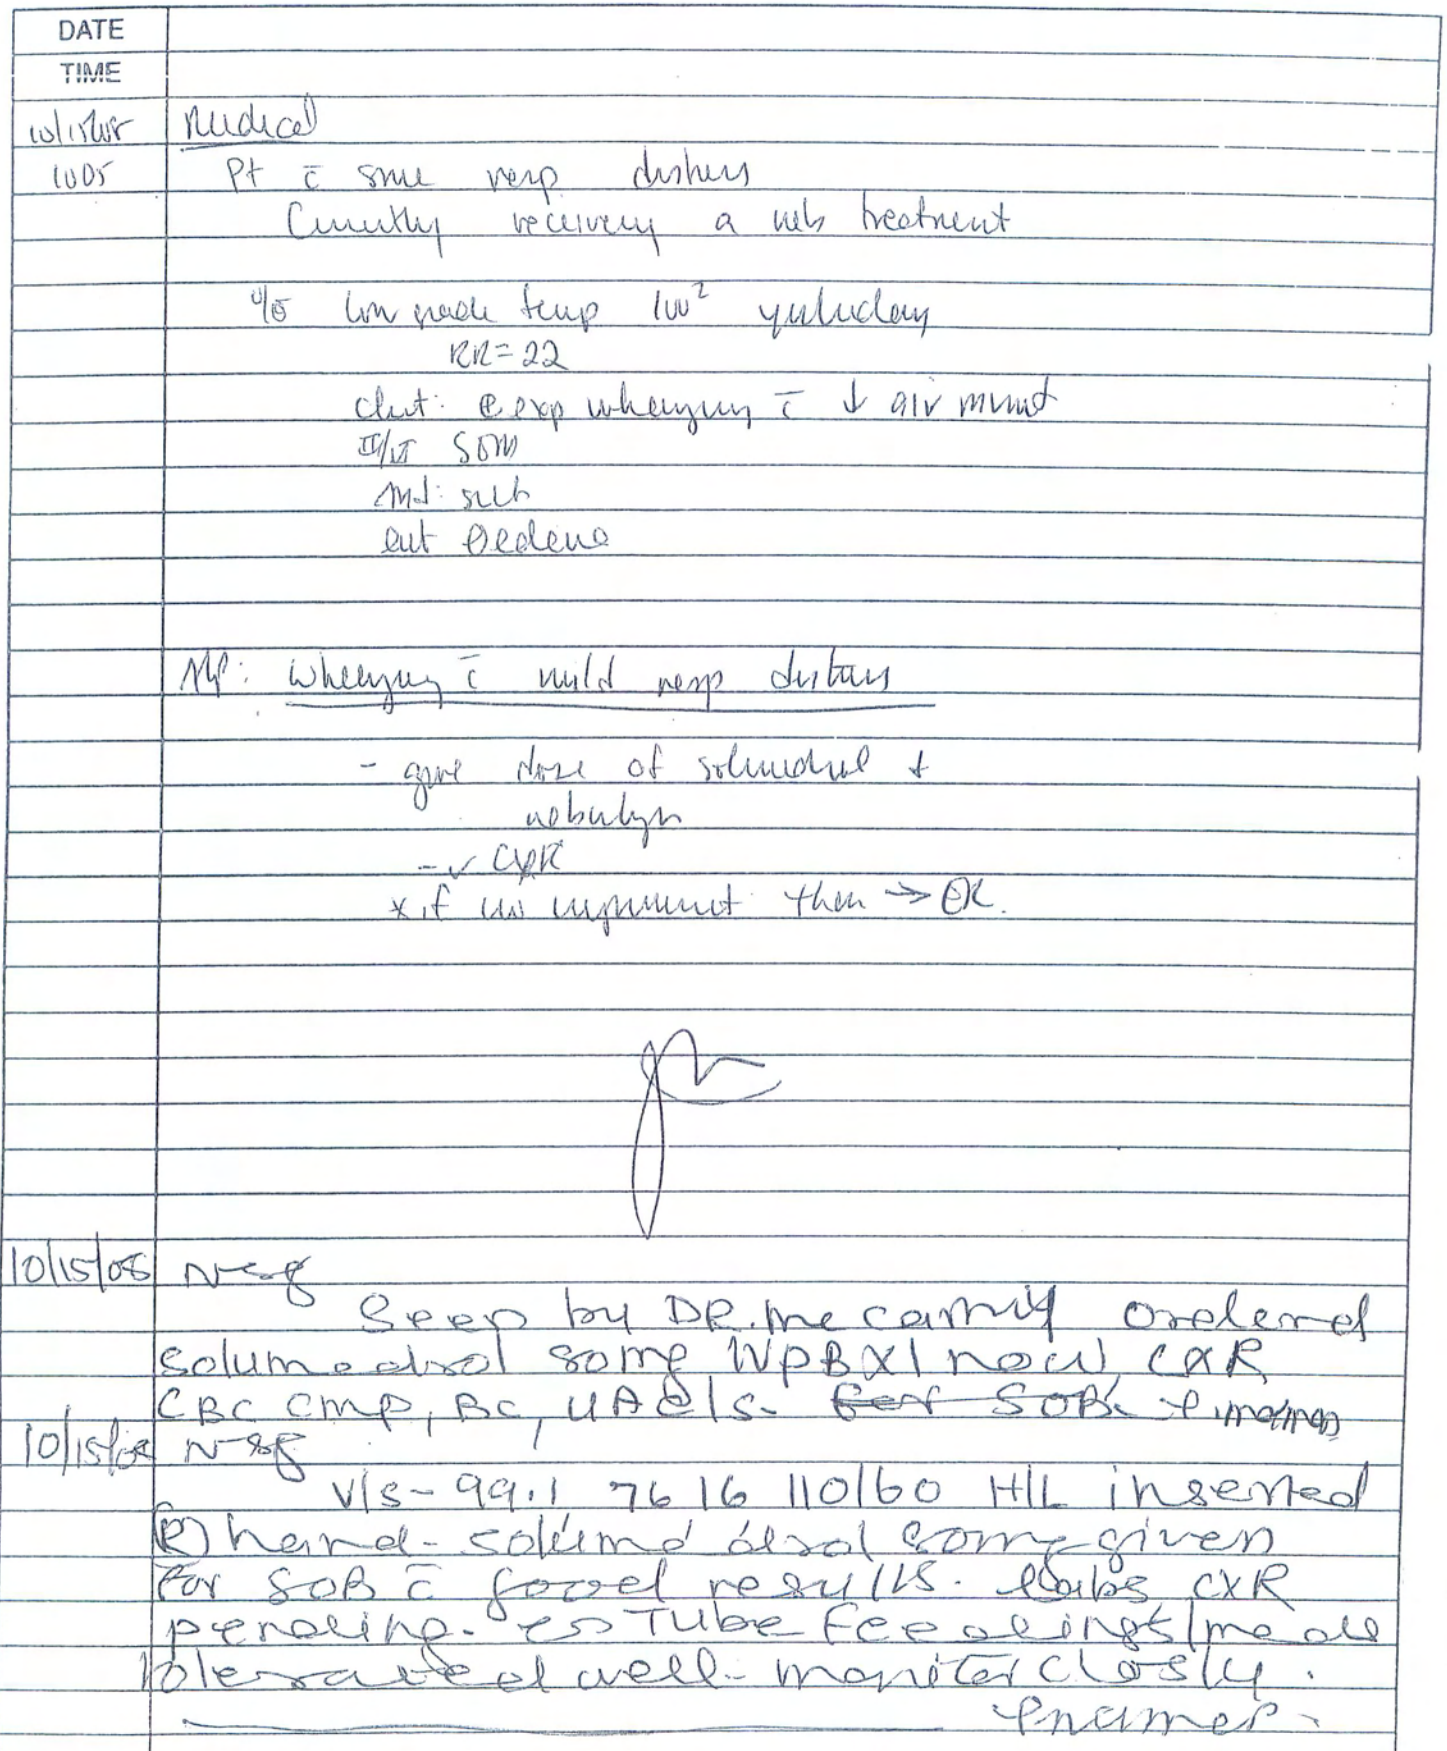 DATE
TIME
10/15/08 Medical
1005 Pt c̄ some resp distress
Currently receiving a neb treatment
low grade temp 100² yesterday
RR=22
chest: ⊕ exp wheezing c̄ ↓ air mvmt
II/VI SEM
Abd: soft
ext ∅ edema
A/P: wheezing c̄ mild resp distress
- give dose of solumedrol +
nebulizer
- ✓ CXR
* if no improvement then → ER.
10/15/08 Nsg
Seen by DR. Mc Carthy ordered
Solumedrol 80mg IVPBX1 now CXR
CBC CMP, BC, UA C/S- for SOB.
10/15/08 Nsg
V/S- 99.1 76 16 110/60 H/L inserted
(R) hand- solumedrol 80mg given
for SOB c̄ good results. labs CXR
pending. Tube Feedings/meds
tolerated well- monitor closly.